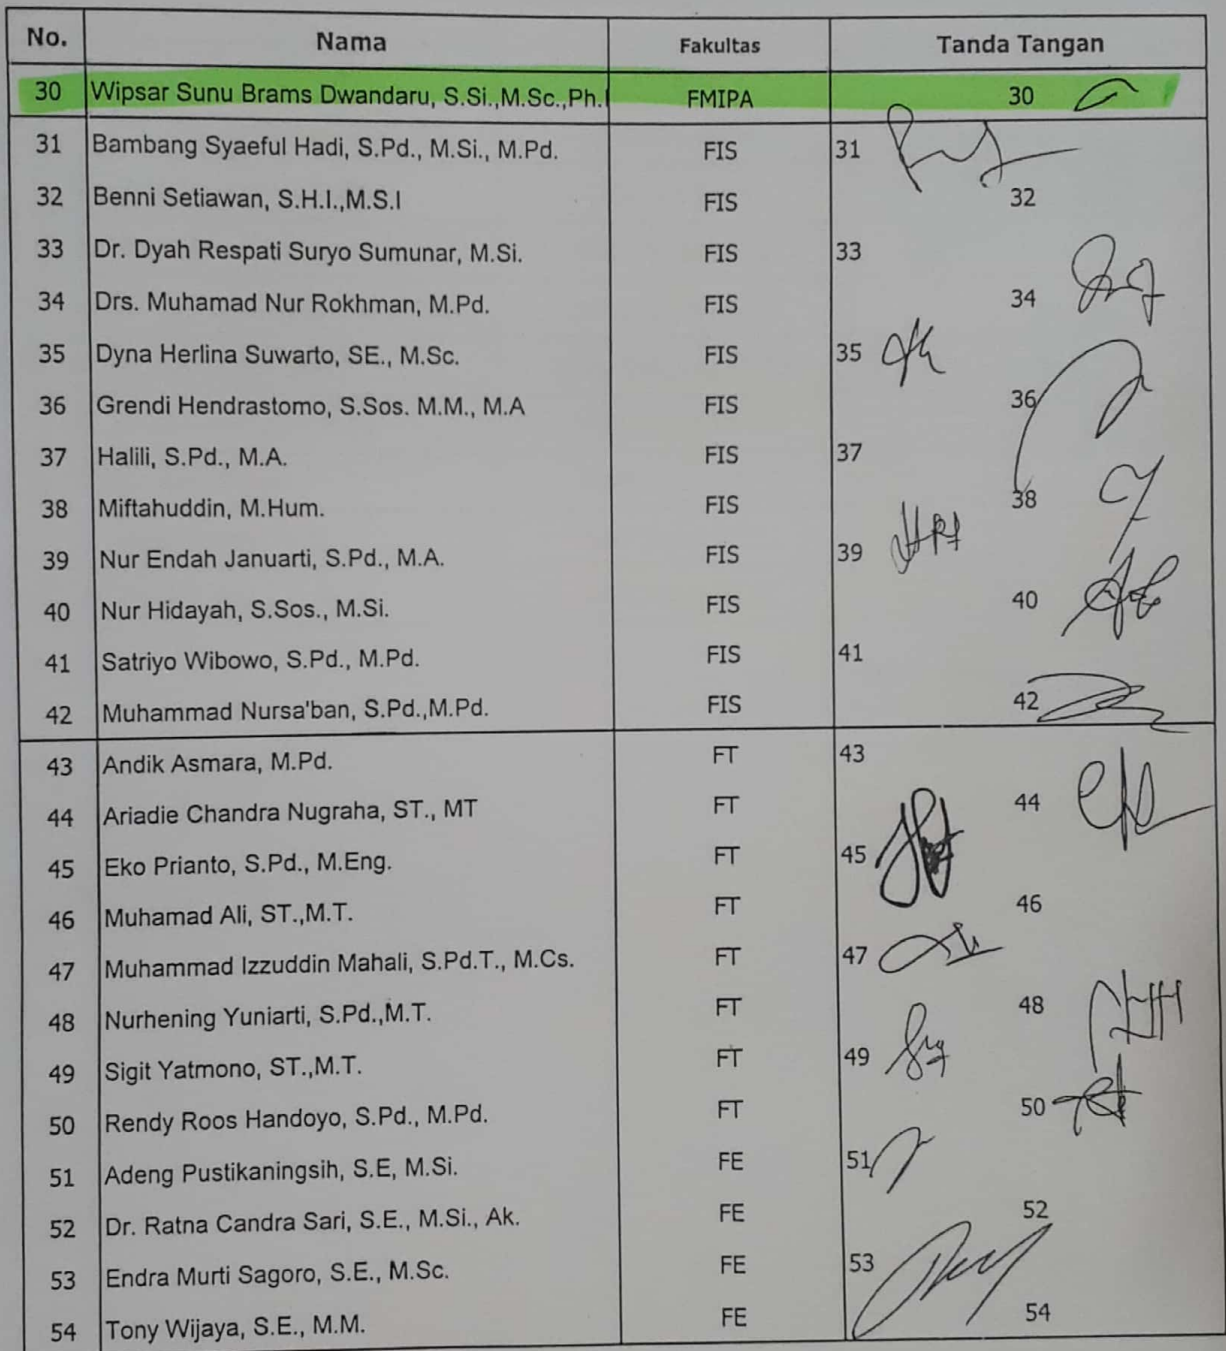 No. Nama Fakultas Tanda Tangan
30 Wipsar Sunu Brams Dwandaru, S.Si.,M.Sc.,Ph. FMIPA 30
31 Bambang Syaeful Hadi, S.Pd., M.Si., M.Pd. FIS 31
32 Benni Setiawan, S.H.I.,M.S.I FIS 32
33 Dr. Dyah Respati Suryo Sumunar, M.Si. FIS 33
34 Drs. Muhamad Nur Rokhman, M.Pd. FIS 34
35 Dyna Herlina Suwarto, SE., M.Sc. FIS 35
36 Grendi Hendrastomo, S.Sos. M.M., M.A FIS 36
37 Halili, S.Pd., M.A. FIS 37
38 Miftahuddin, M.Hum. FIS 38
39 Nur Endah Januarti, S.Pd., M.A. FIS 39
40 Nur Hidayah, S.Sos., M.Si. FIS 40
41 Satriyo Wibowo, S.Pd., M.Pd. FIS 41
42 Muhammad Nursa'ban, S.Pd.,M.Pd. FIS 42
43 Andik Asmara, M.Pd. FT 43
44 Ariadie Chandra Nugraha, ST., MT FT 44
45 Eko Prianto, S.Pd., M.Eng. FT 45
46 Muhamad Ali, ST.,M.T. FT 46
47 Muhammad Izzuddin Mahali, S.Pd.T., M.Cs. FT 47
48 Nurhening Yuniarti, S.Pd.,M.T. FT 48
49 Sigit Yatmono, ST.,M.T. FT 49
50 Rendy Roos Handoyo, S.Pd., M.Pd. FT 50
51 Adeng Pustikaningsih, S.E, M.Si. FE 51
52 Dr. Ratna Candra Sari, S.E., M.Si., Ak. FE 52
53 Endra Murti Sagoro, S.E., M.Sc. FE 53
54 Tony Wijaya, S.E., M.M. FE 54